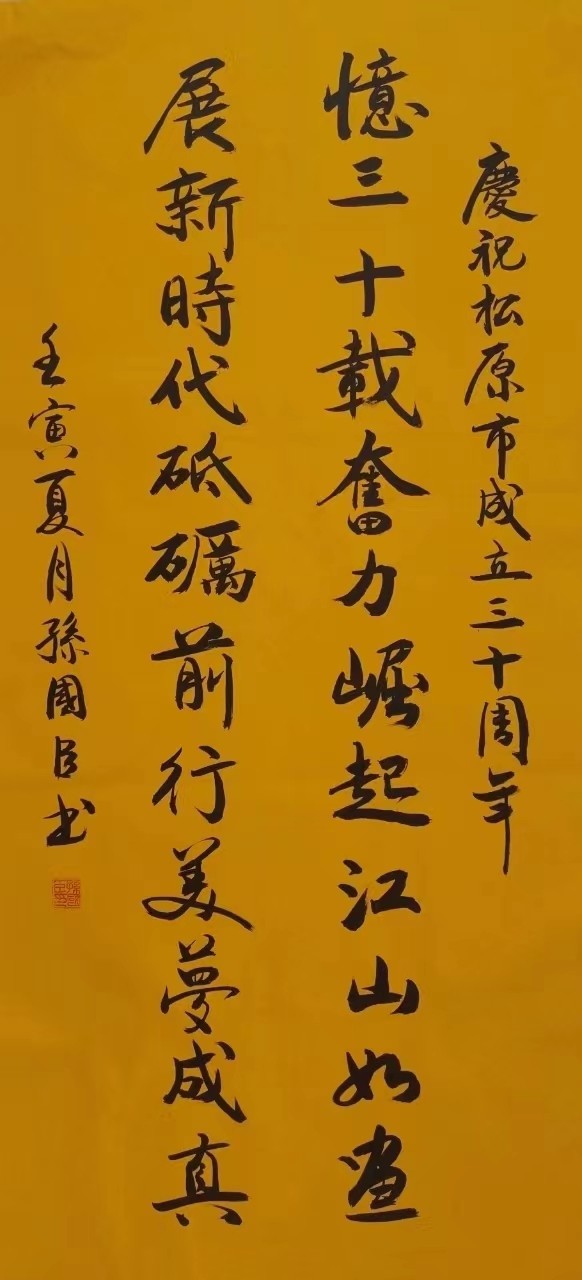 慶祝松原市成立三十周年
憶三十載奮力崛起江山如畫
展新時代砥礪前行美夢成真
壬寅夏月孫國臣书